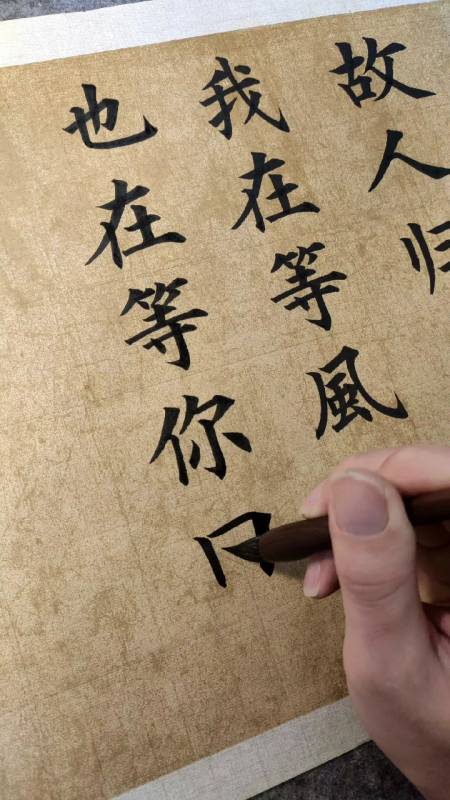 故人归
我在等風
也在等你